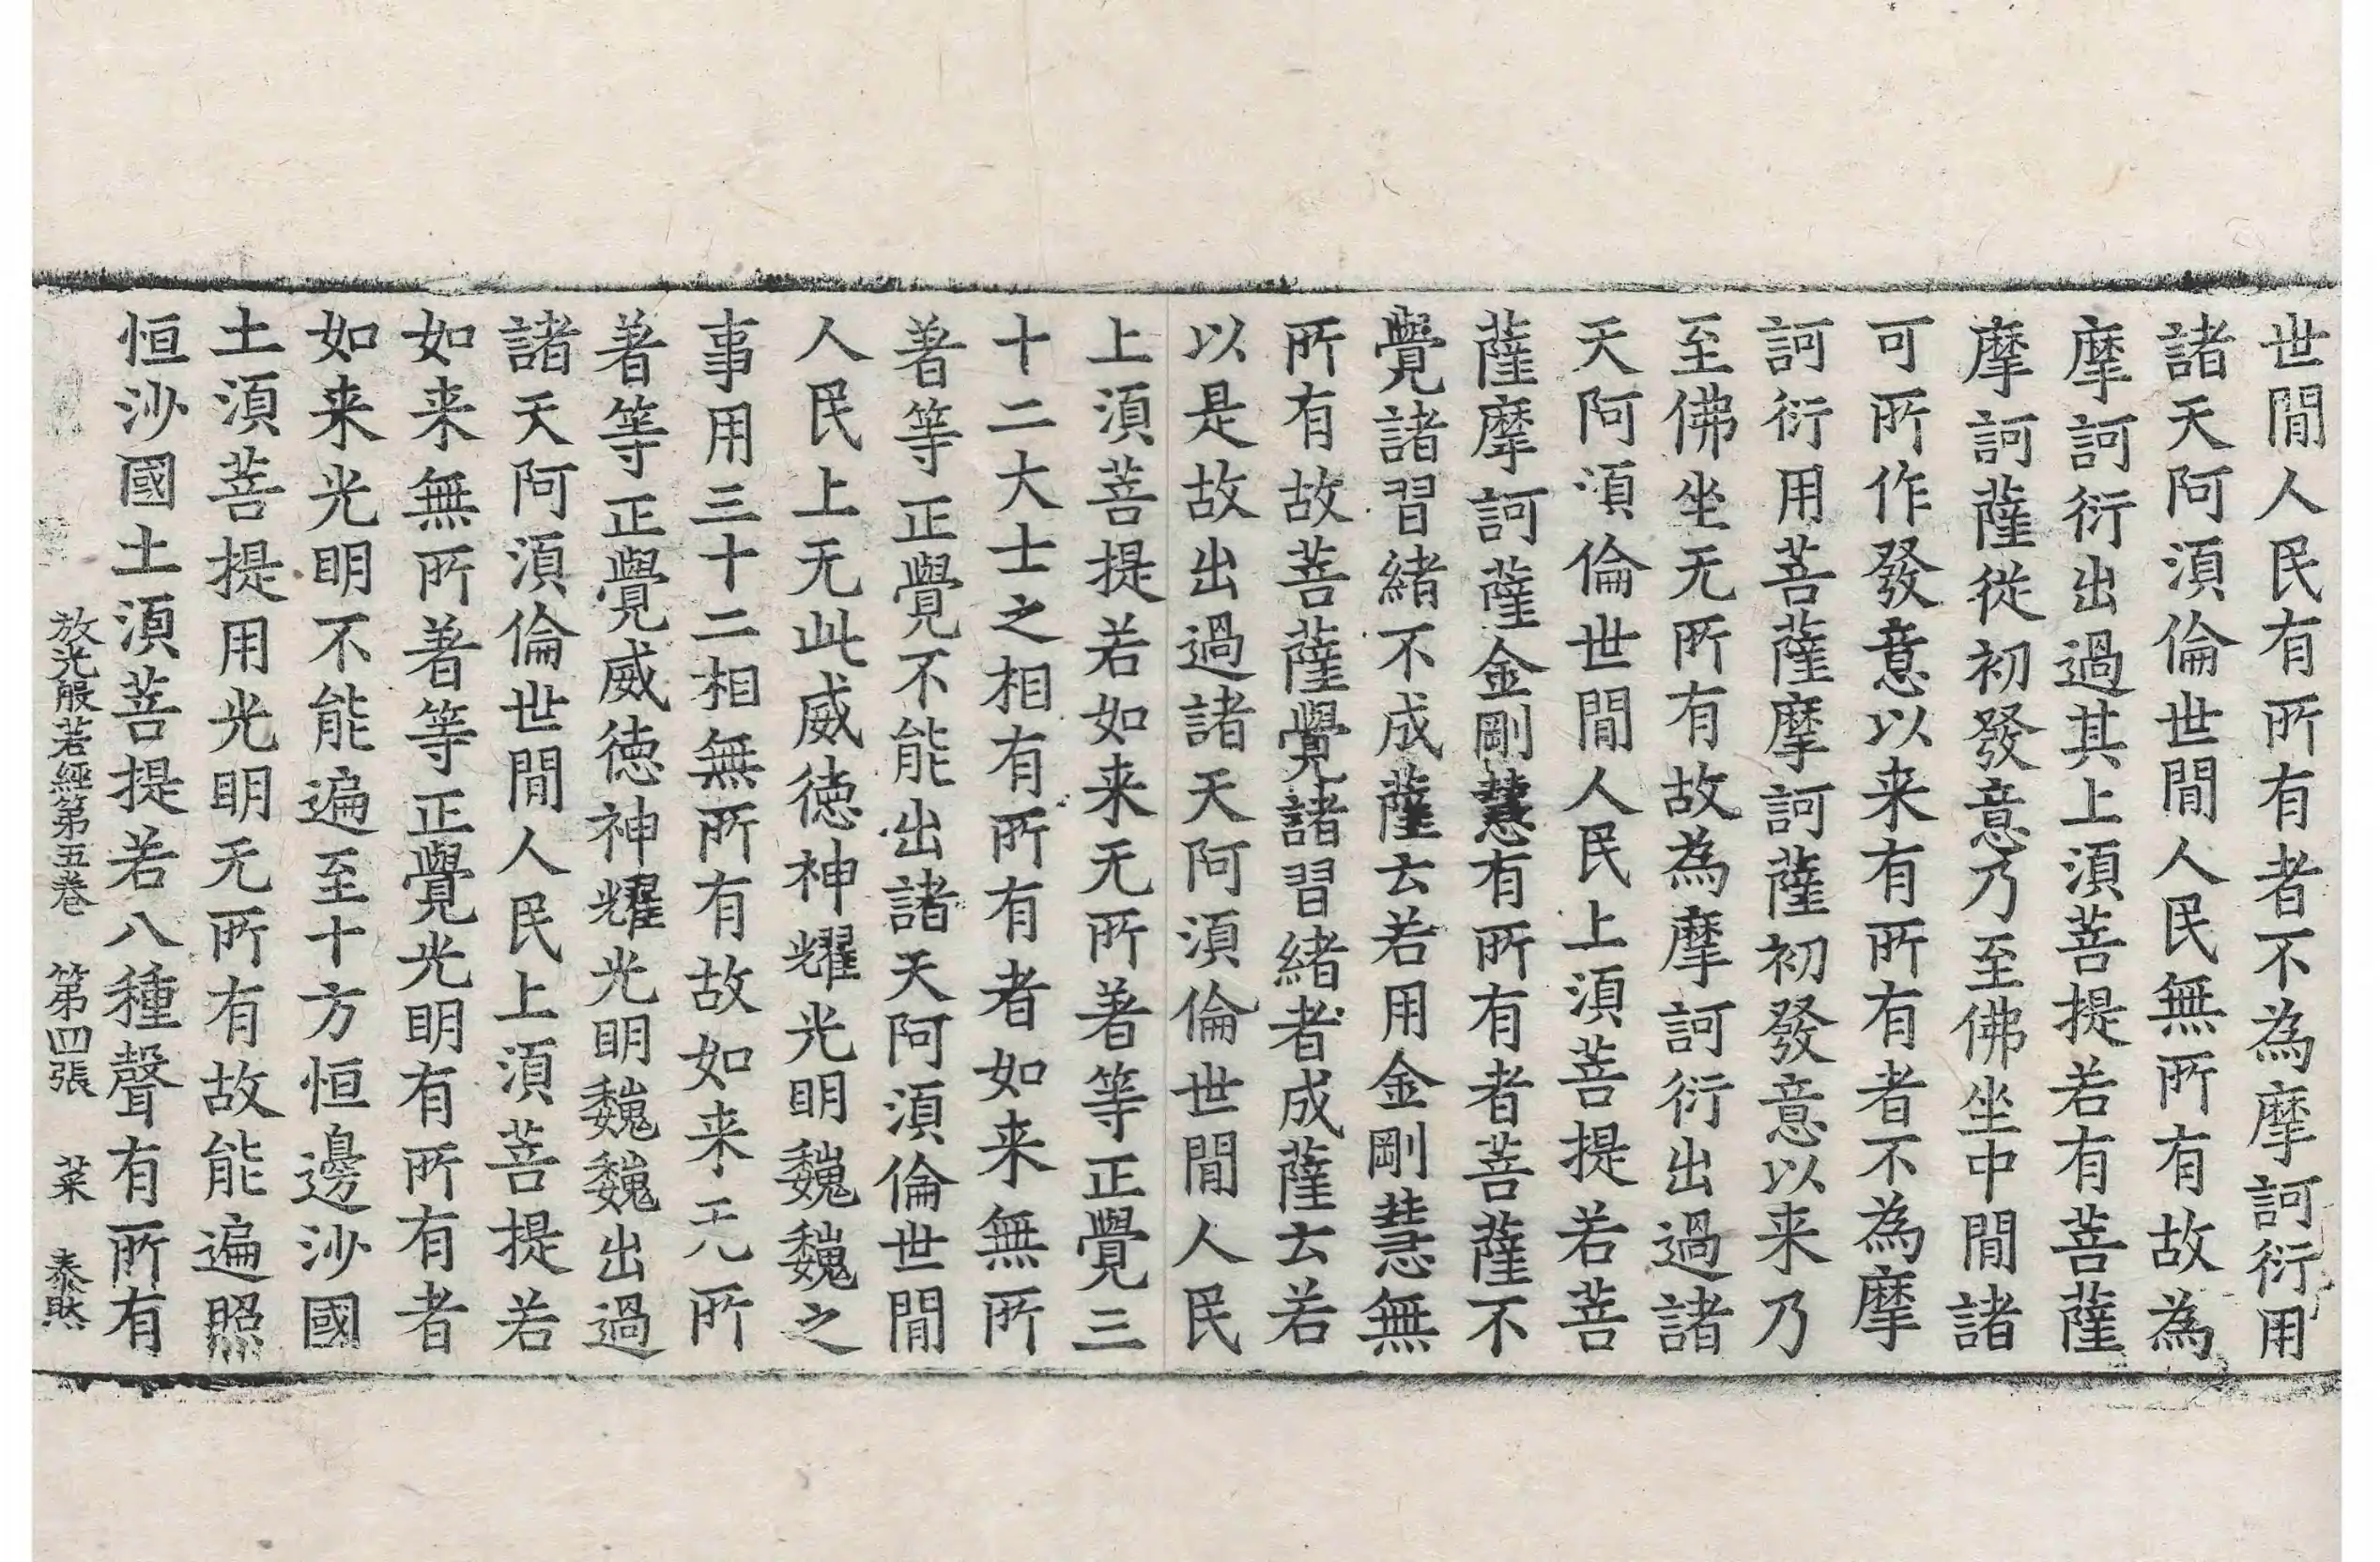 世閒人民有所有者不為摩訶衍用
諸天阿湏倫世閒人民無所有故為
摩訶衍出過其上湏菩提若有菩薩
摩訶薩從初發意乃至佛坐中閒諸
可所作發意以来有所有者不為摩
訶衍用菩薩摩訶薩初發意以来乃
至佛坐无所有故為摩訶衍出過諸
天阿湏倫世閒人民上湏菩提若菩
薩摩訶薩金剛慧有所有者菩薩不
覺諸習緒不成薩云若用金剛慧無
所有故菩薩覺諸習緒者成薩云若
以是故出過諸天阿湏倫世閒人民
上湏菩提若如来无所著等正覺三
十二大士之相有所有者如来無所
著等正覺不能出諸天阿湏倫世閒
人民上无此威德神耀光明巍巍之
事用三十二相無所有故如来无所
著等正覺威德神耀光明巍巍出過
諸天阿湏倫世閒人民上湏菩提若
如来無所著等正覺光明有所有者
如来光明不能遍至十方恒邊沙國
土湏菩提用光明无所有故能遍照
恒沙國土湏菩提若八種聲有所有
放光般若經第五卷 第四張 菜 泰㷡